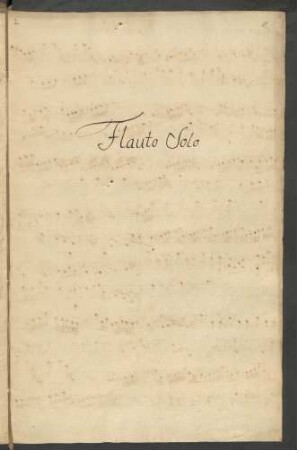 Flauto Solo